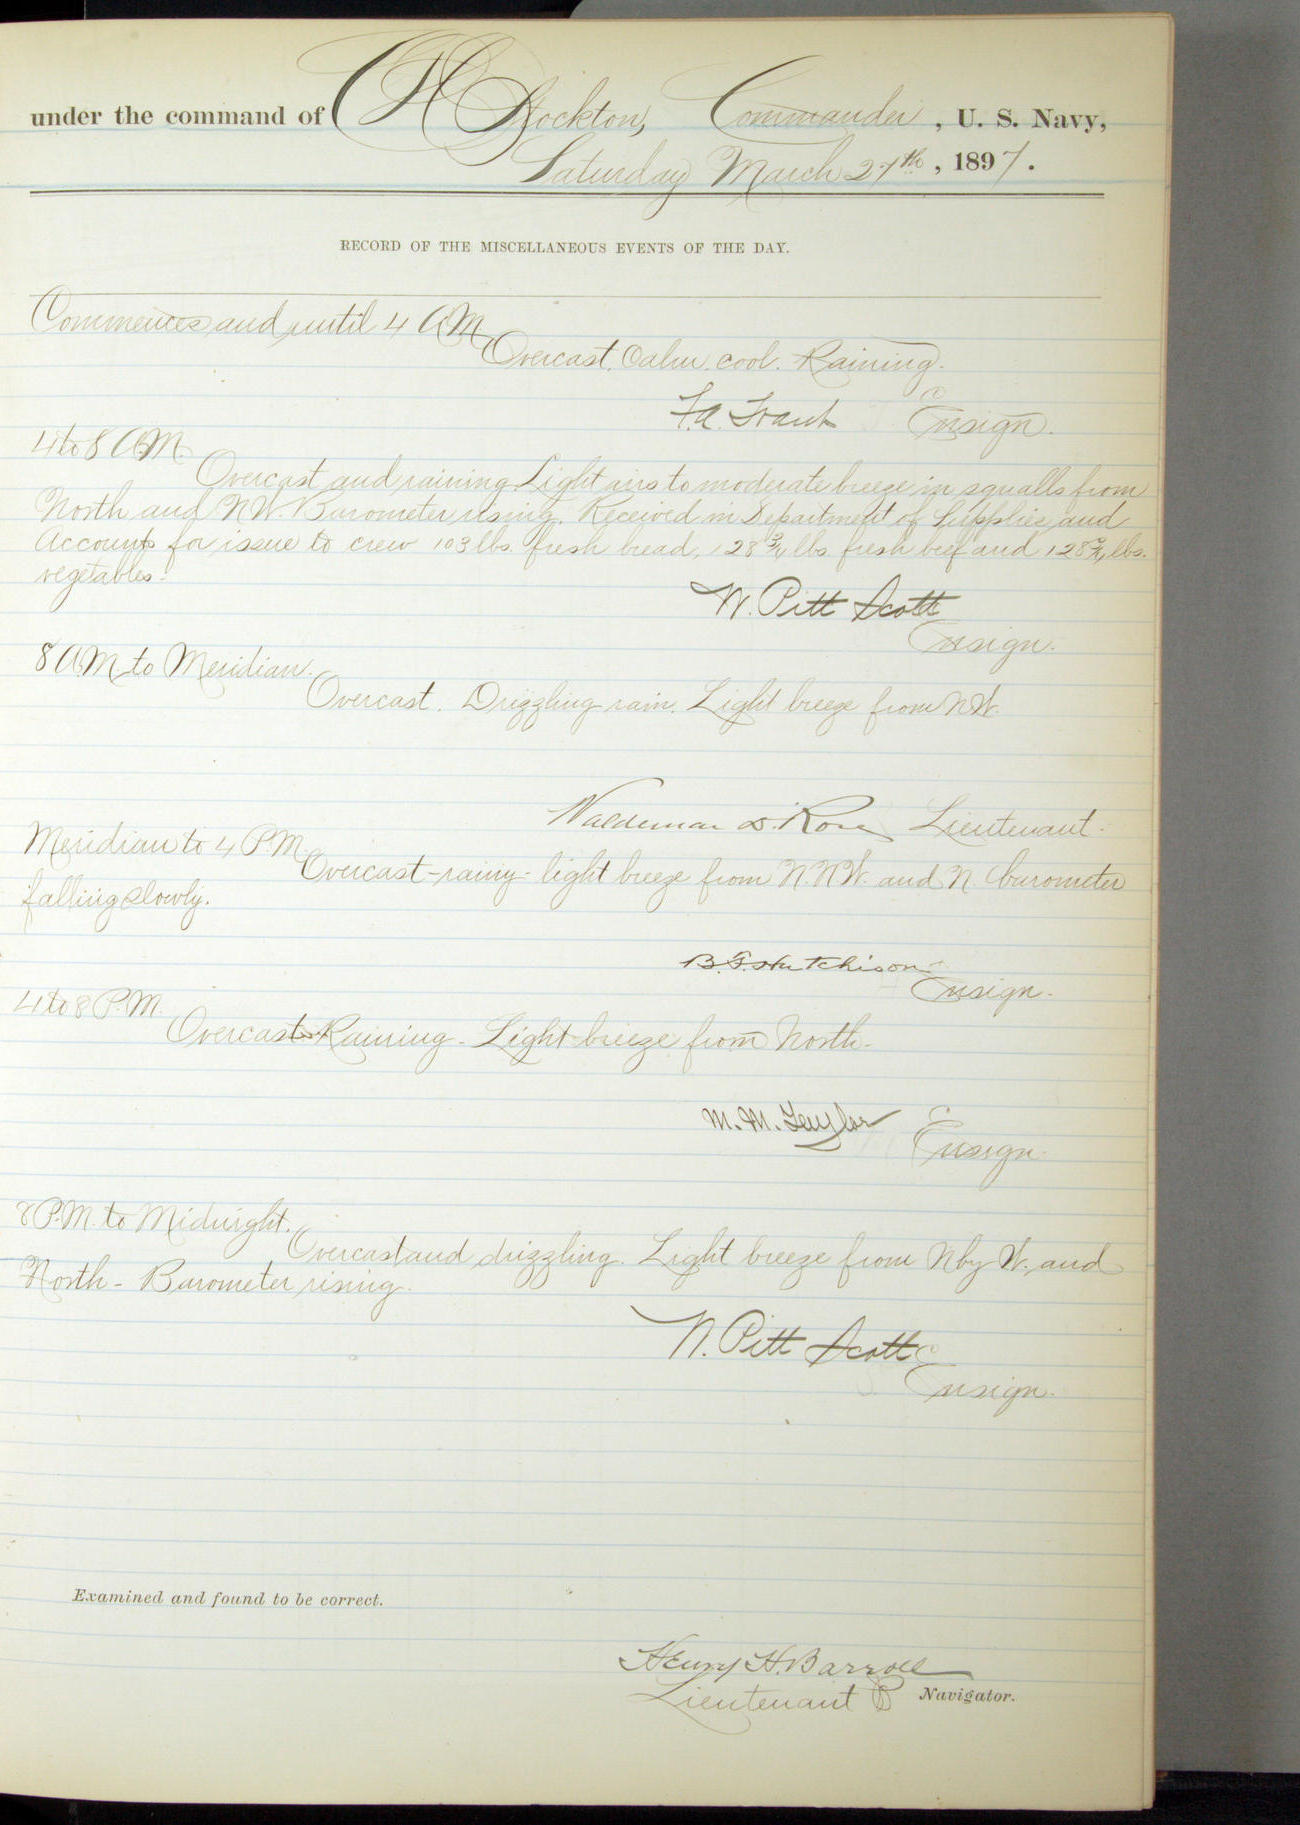 under the command of C H Stockton, Commander, U. S. Navy,
Saturday March 27th, 1897.
RECORD OF THE MISCELLANEOUS EVENTS OF THE DAY.
Commences and until 4 A.M.
Overcast. Calm. cool. Raining.
F. A. Traut Ensign.
4 to 8 A.M.
Overcast and raining. Light airs to moderate breeze in squalls from
North and NW. Barometer rising. Received in Department of Supplies and
Accounts for issue to crew 103 lbs. fresh bread, 128 3/4 lbs. fresh beef and 128 3/4 lbs.
vegetables.
W. Pitt Scott
Ensign.
8 A.M. to Meridian.
Overcast. Drizzling rain. Light breeze from NW.
Valdemar D. Rose Lieutenant.
Meridian to 4 P.M.
Overcast - rainy - light breeze from N.N.W. and N. barometer
falling slowly.
B. F. Hutchison
Ensign.
4 to 8 P.M.
Overcast. Raining - Light breeze from North -
M. M. Taylor
Ensign.
8 P.M. to Midnight.
Overcast and drizzling. Light breeze from N by W. and
North - Barometer rising.
W. Pitt Scott
Ensign.
Examined and found to be correct.
Henry H. Barroll
Lieutenant Navigator.